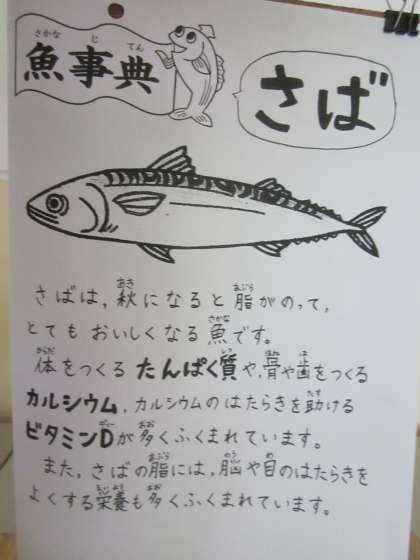 魚事典
さば
さばは、秋になると脂がのって、
とてもおいしくなる魚です。
体をつくるたんぱく質や、骨や歯をつくる
カルシウム、カルシウムのはたらきを助ける
ビタミンDが多くふくまれています。
また、さばの脂には、脳や目のはたらきを
よくする栄養も多くふくまれています。